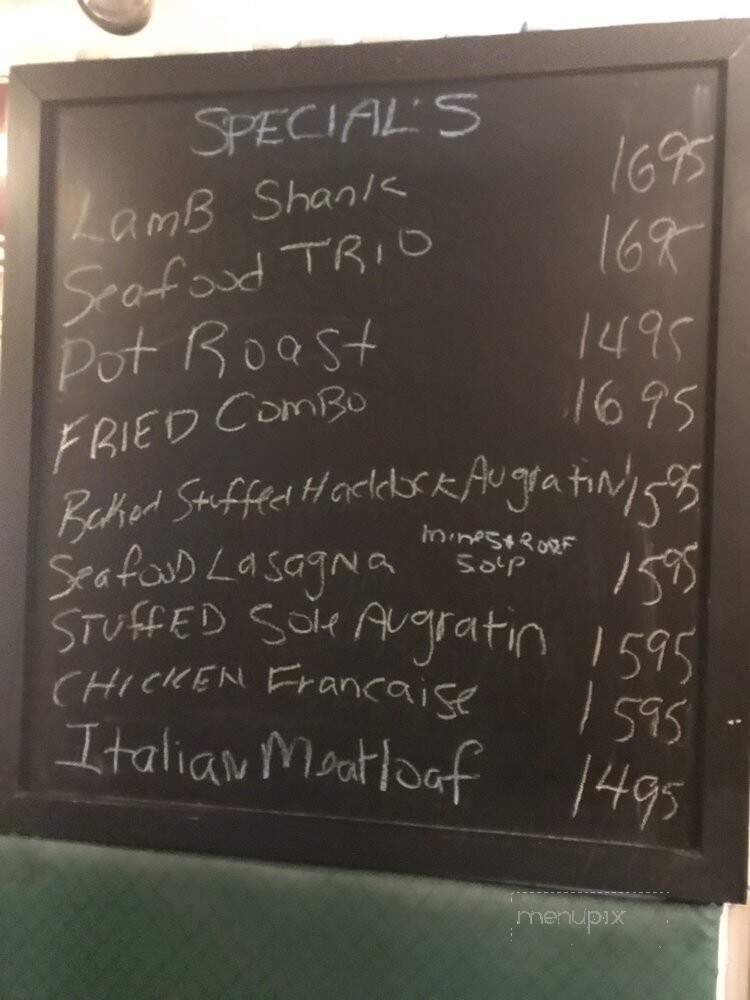 SPECIAL'S
LamB Shank 1695
Seafood TRIO 1695
Pot Roast 1495
FRIED ComBo 1695
Baked Stuffed Haddock AugratiN 1595
Seafood LasagNa 1595
SOUP
STUFFED Sole Augratin 1595
CHICKEN Francaise 1595
ItaliaN Meatloaf 1495
menupix